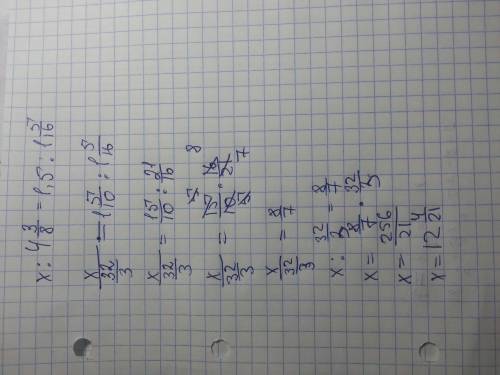 x : 4 3/8 = 1,5 : 1 5/16
x / (32/3) = 1 5/10 : 1 5/16
x / (32/3) = 15/10 : 21/16
x / (32/3) = 15/10 · 16/21 8 7 5 5
x / (32/3) = 8/7
x : 32/3 = 8/7
x = 8/7 · 32/3
x = 256/21
x = 12 4/21